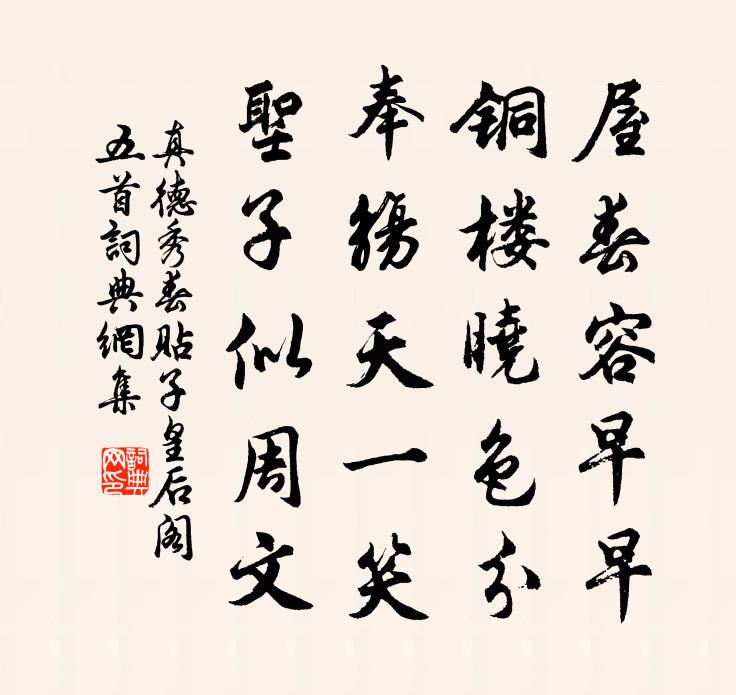 屋春容早早
铜楼晓色分
奉觞天一笑
聖子似周文
真德秀春贴子皇后阁
五首詞典網集
詞典
网印